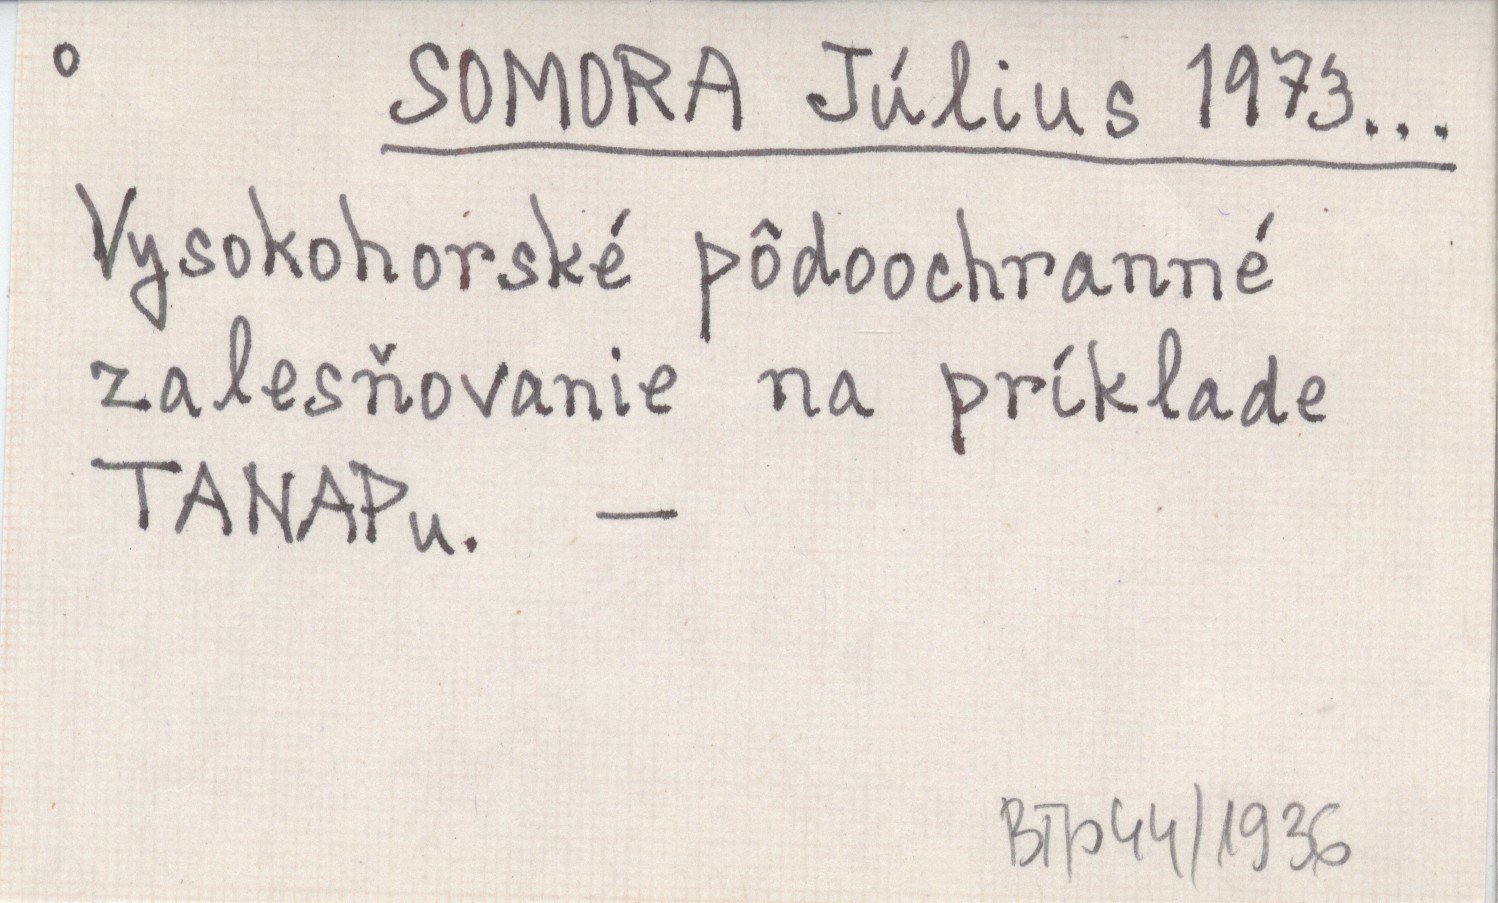 o SOMORA Július 1973...
Vysokohorské pôdoochranné
zalesňovanie na príklade
TANAPu. —
BTp44/1936